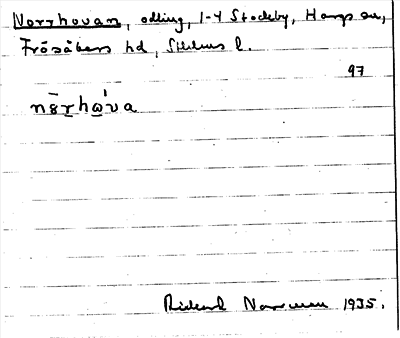 Norrhovan, odling, 1-4 Stockby, Hargs sn,
Frösåkers hd, Sthlms l.
97
Rickard Norrman 1935.